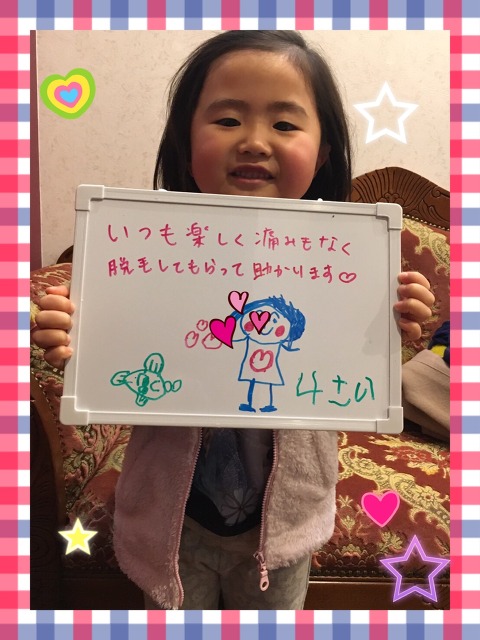 いつも楽しく痛みもなく
脱毛してもらって助かります♡
4さい